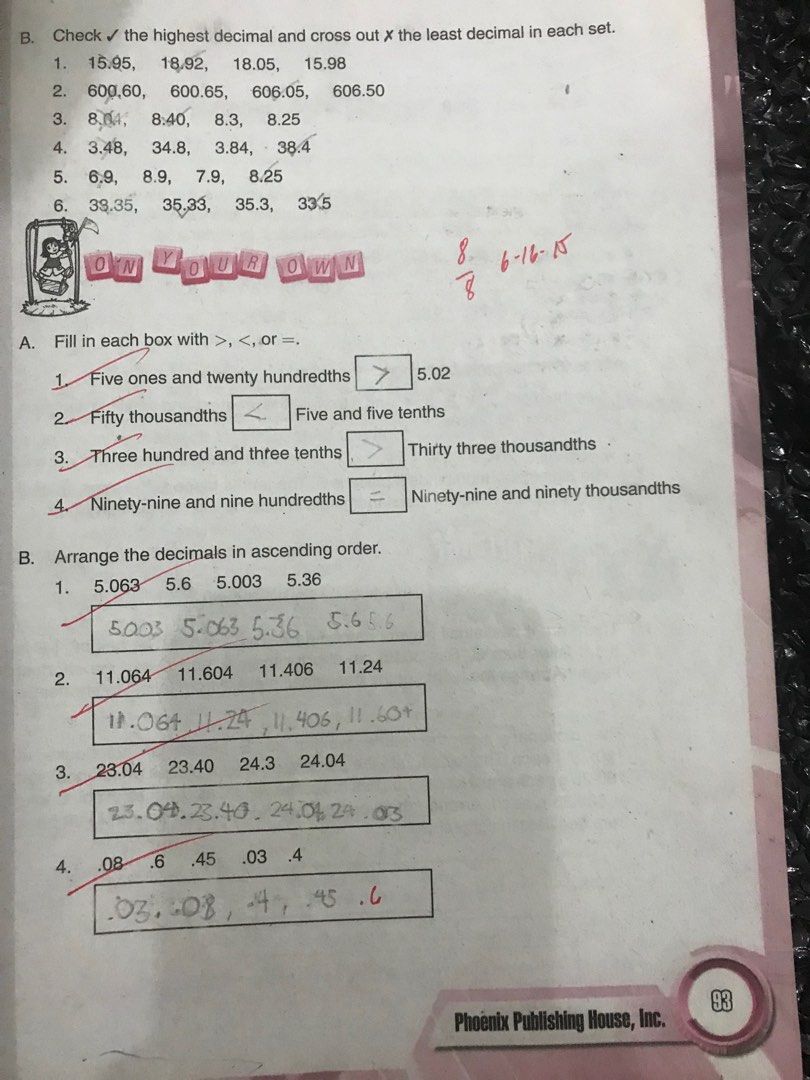 B. Check ✓ the highest decimal and cross out ✗ the least decimal in each set.
1. 15.95, 18.92, 18.05, 15.98
2. 600.60, 600.65, 606.05, 606.50
3. 8.04, 8.40, 8.3, 8.25
4. 3.48, 34.8, 3.84, 38.4
5. 6.9, 8.9, 7.9, 8.25
6. 33.35, 35.33, 35.3, 33.5
ON YOUR OWN
8/8 6-16-15
A. Fill in each box with >, <, or =.
1. Five ones and twenty hundredths > 5.02
2. Fifty thousandths < Five and five tenths
3. Three hundred and three tenths > Thirty three thousandths
4. Ninety-nine and nine hundredths = Ninety-nine and ninety thousandths
B. Arrange the decimals in ascending order.
1. 5.063 5.6 5.003 5.36
5.003 5.063 5.36 5.6 5.6
2. 11.064 11.604 11.406 11.24
11.064, 11.24, 11.406, 11.604
3. 23.04 23.40 24.3 24.04
23.04. 23.40. 24.04 24
4. .08 .6 .45 .03 .4
.03. .08, .4, .45 .6
Phoenix Publishing House, Inc. 93